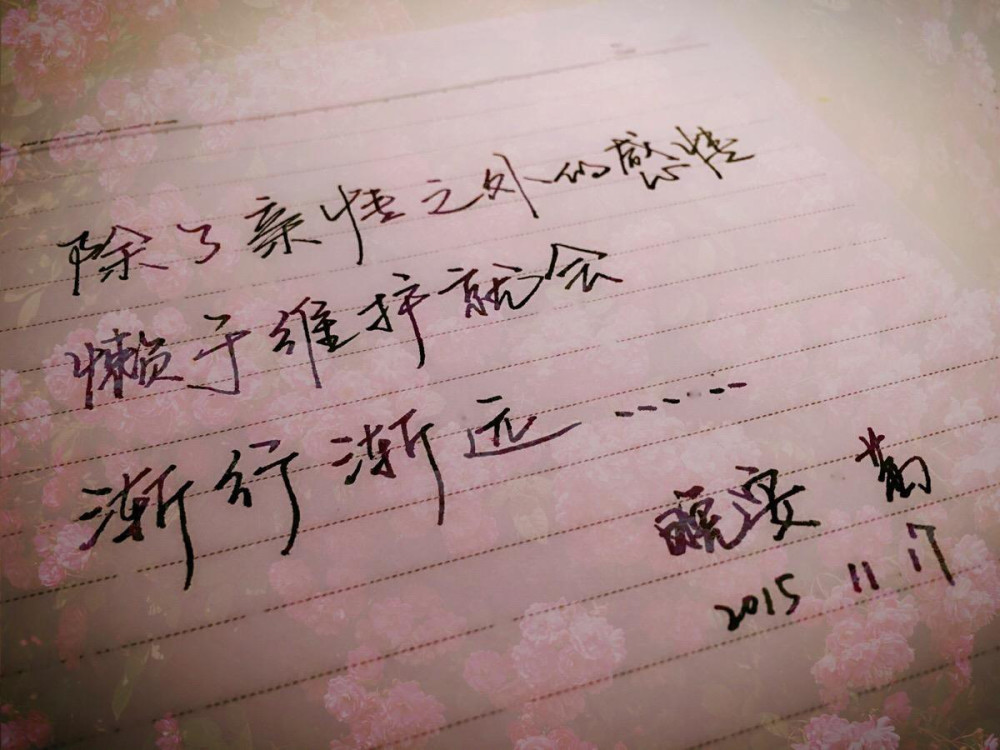 除了亲情之外的感情
懒于维护就会
渐行渐远……
晚安
2015 11 17